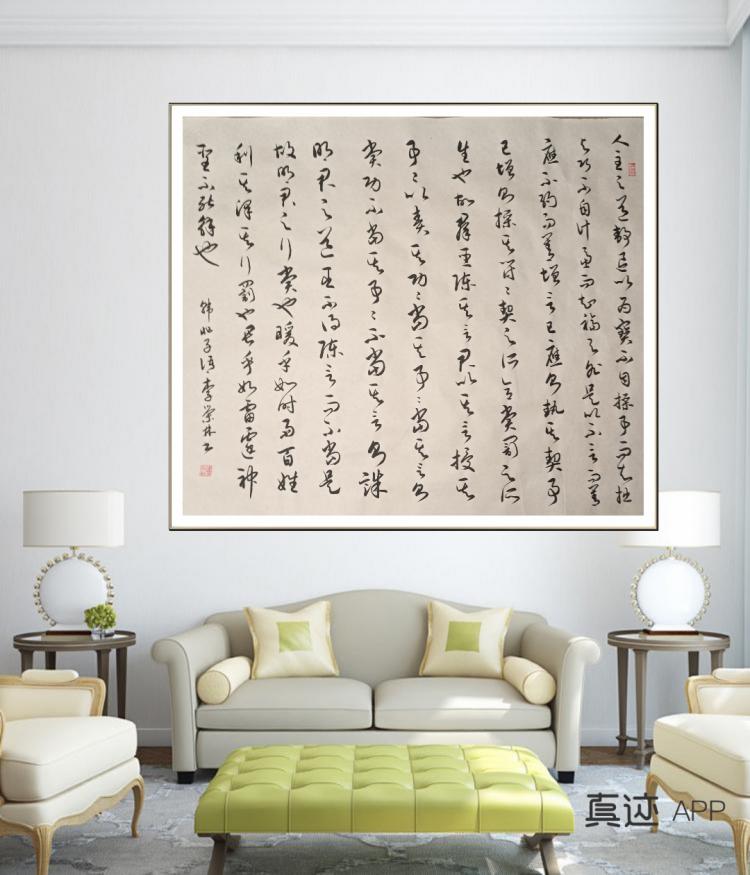 人主之道靜退以為寶不自操事而知拙
与巧不自计虑而知福与咎是以不言而善
應不約而善增言已應則執其契事
已增則操其符々契之所合賞罰之所
生也故羣臣陳其言君以其言授其
事々以責其功々當其事々當其言則
賞功不當其事々不當其言則誅
明君之道臣不得陳言而不當是
故明君之行賞也暖乎如时雨百姓
利其澤其行罰也畏乎如雷霆神
聖不能解也
韩非子语李荣林书
真迹 APP